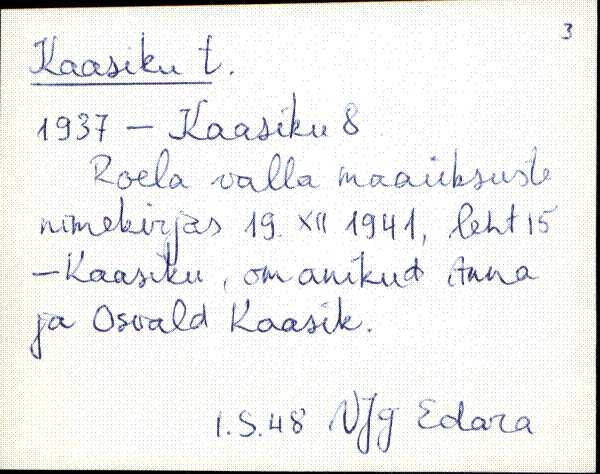 3
Kaasiku t.
1937 – Kaasiku 8
Roela valla maaüksuste
nimekirjas 19. XII 1941, leht 15
– Kaasiku, omanikud Anna
ja Osvald Kaasik.
1.S.48 VJg Edara